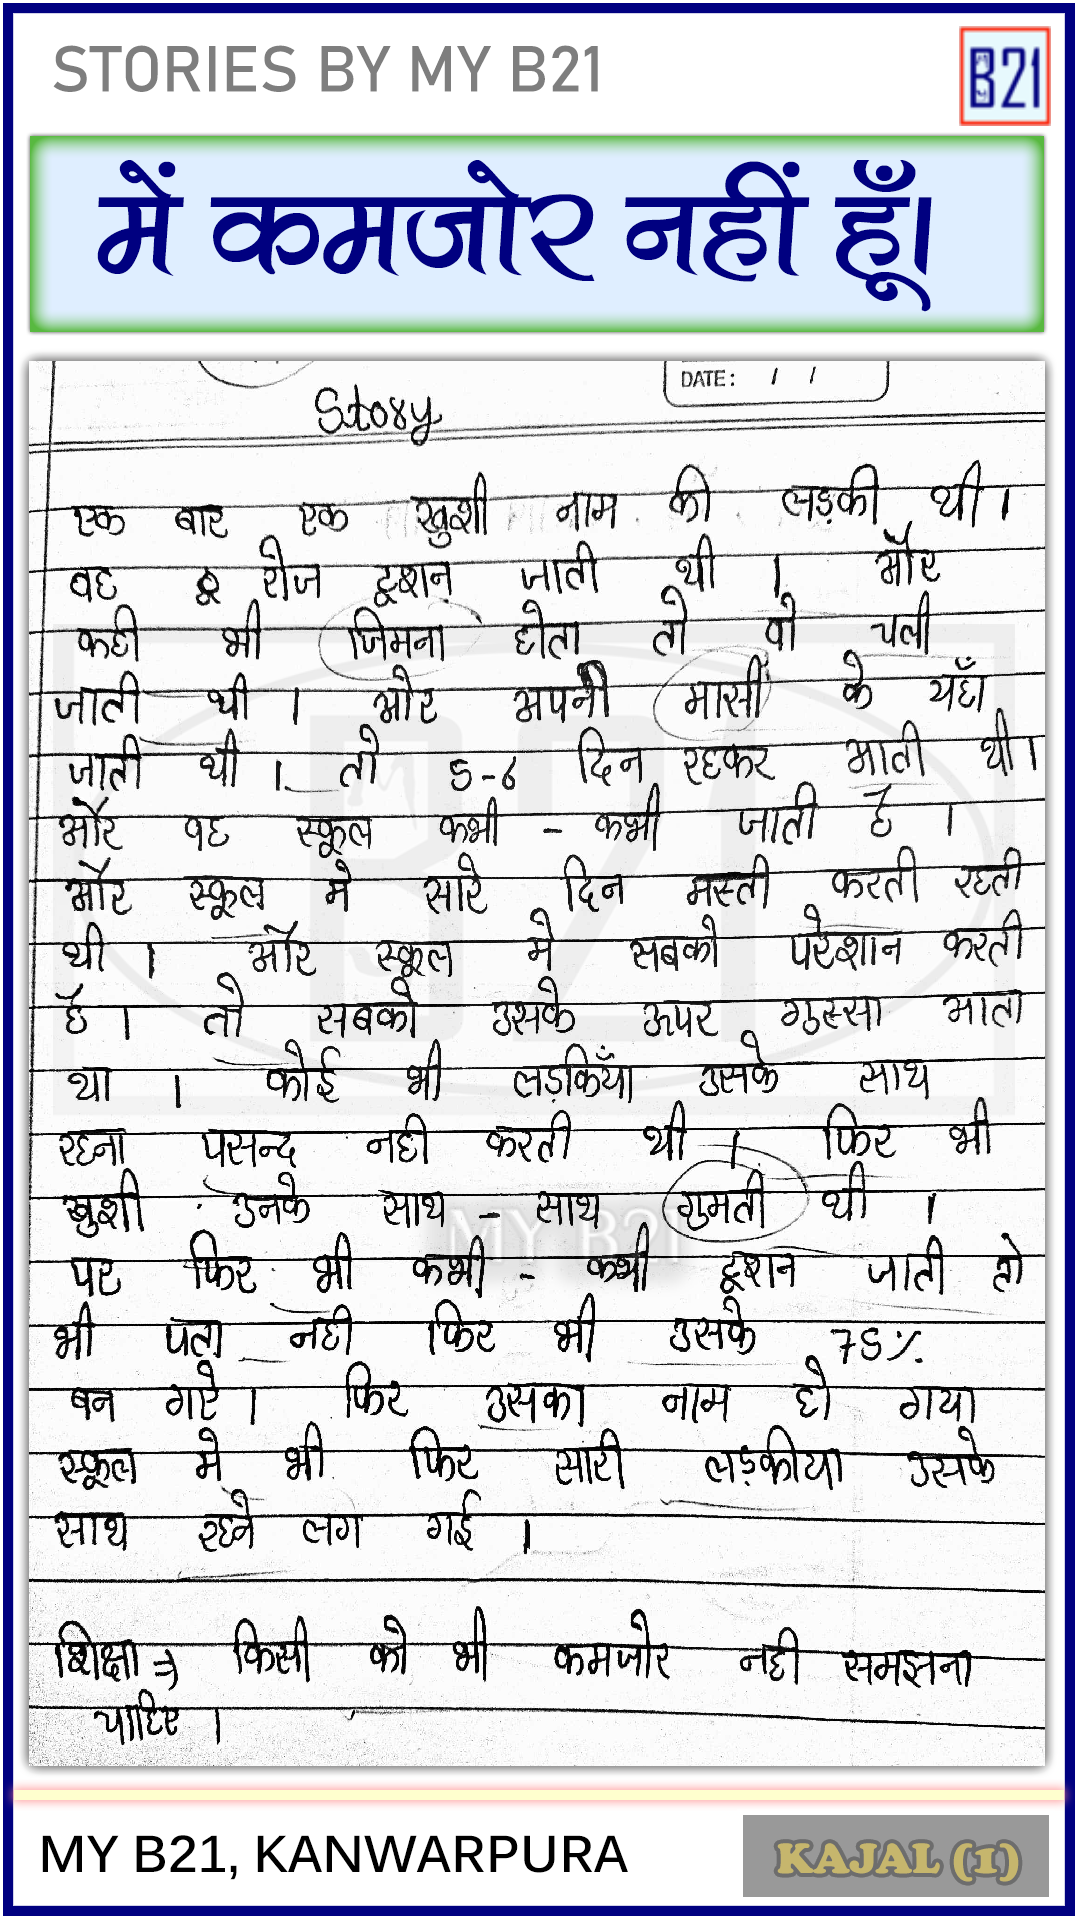 STORIES BY MY B21
B21
में कमजोर नहीं हूँ।
DATE: / /
Story
एक बार एक खुशी नाम की लड़की थी ।
वह रोज टूशन जाती थी । और
कही भी जिमना होता तो वो चली
जाती थी । और अपनी मासी के यहाँ
जाती थी । तो 5-6 दिन रहकर आती थी ।
और वह स्कूल कभी - कभी जाती है ।
और स्कूल मे सारे दिन मस्ती करती रहती
थी । और स्कूल मे सबको परेशान करती
है । तो सबको उसके ऊपर गुस्सा आता
था । कोई भी लड़कियाँ उसके साथ
रहना पसन्द नही करती थी । फिर भी
खुशी उनके साथ - साथ गुमती थी ।
पर फिर भी कभी - कभी टूशन जाती तो
भी पता नही फिर भी उसके 75%
बन गऐ । फिर उसका नाम हो गया
स्कूल मे भी फिर सारी लड़कीया उसके
साथ रहने लग गई ।
शिक्षा => किसी को भी कमजोर नही समझना
चाहिए ।
MY B21
MY B21, KANWARPURA
KAJAL (1)